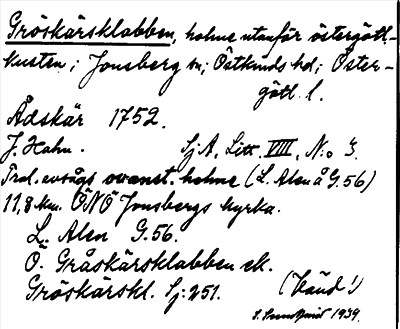 Gröskärsklabben, holme utanför östergötl.-
kusten; Jonsberg sn; Östkinds hd; Öster-
götl. l.
Ådskär 1752.
J. Hahn. Sj.A. Litt. VIII, N:o 3.
Trol. avsågs ovanst. holme (L. Alen å G.56)
11,8 km. ÖNÖ Jonsbergs kyrka.
L. Alen G.56.
O. Gråskärsklabben ek.
Gröskärskl. Sj: 251. (Känd!)
1939.